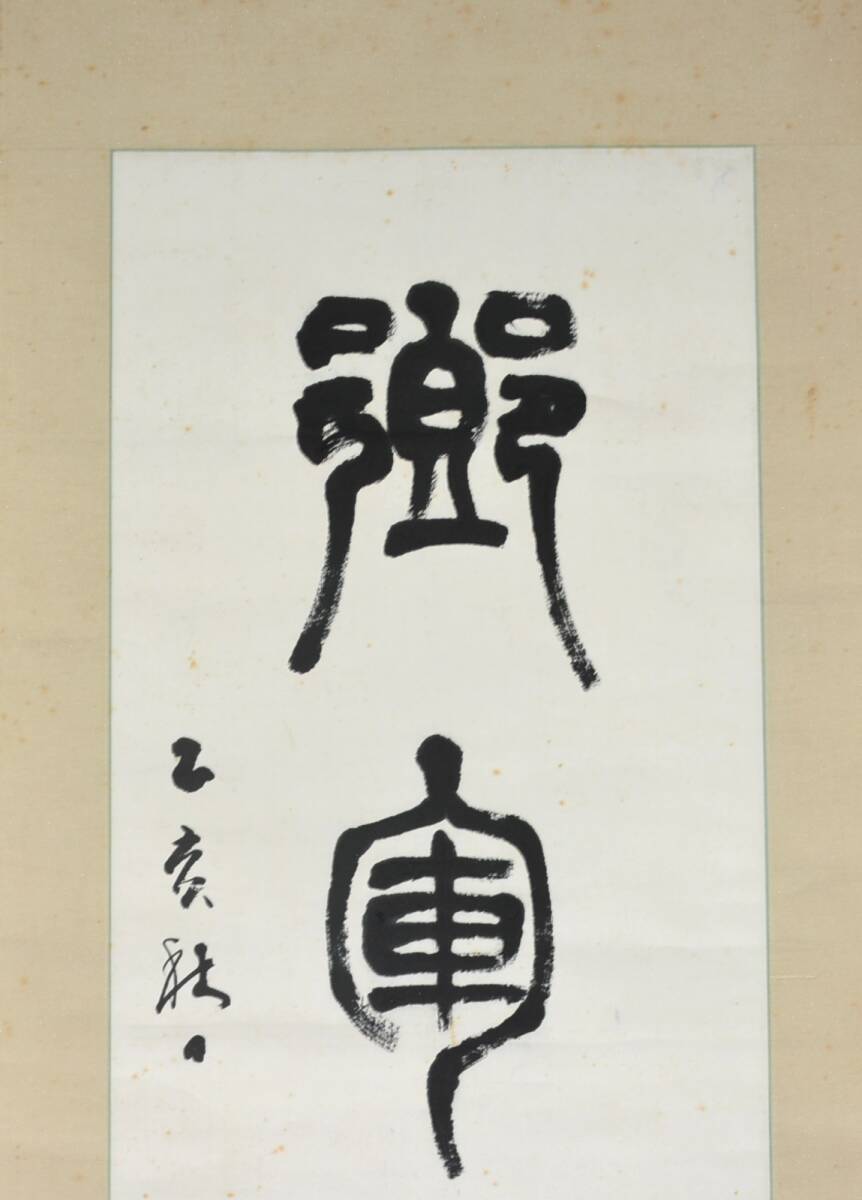 鄉軍
乙亥秋日